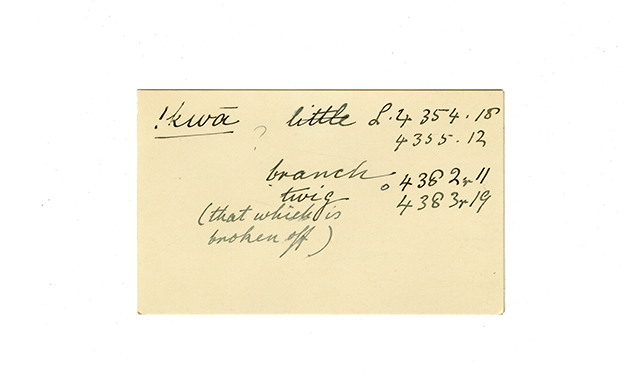 !kwā little L. 4354. 18
? 4355. 12
branch o 4382r 11
twig 4383r 19
(that which is
broken off)